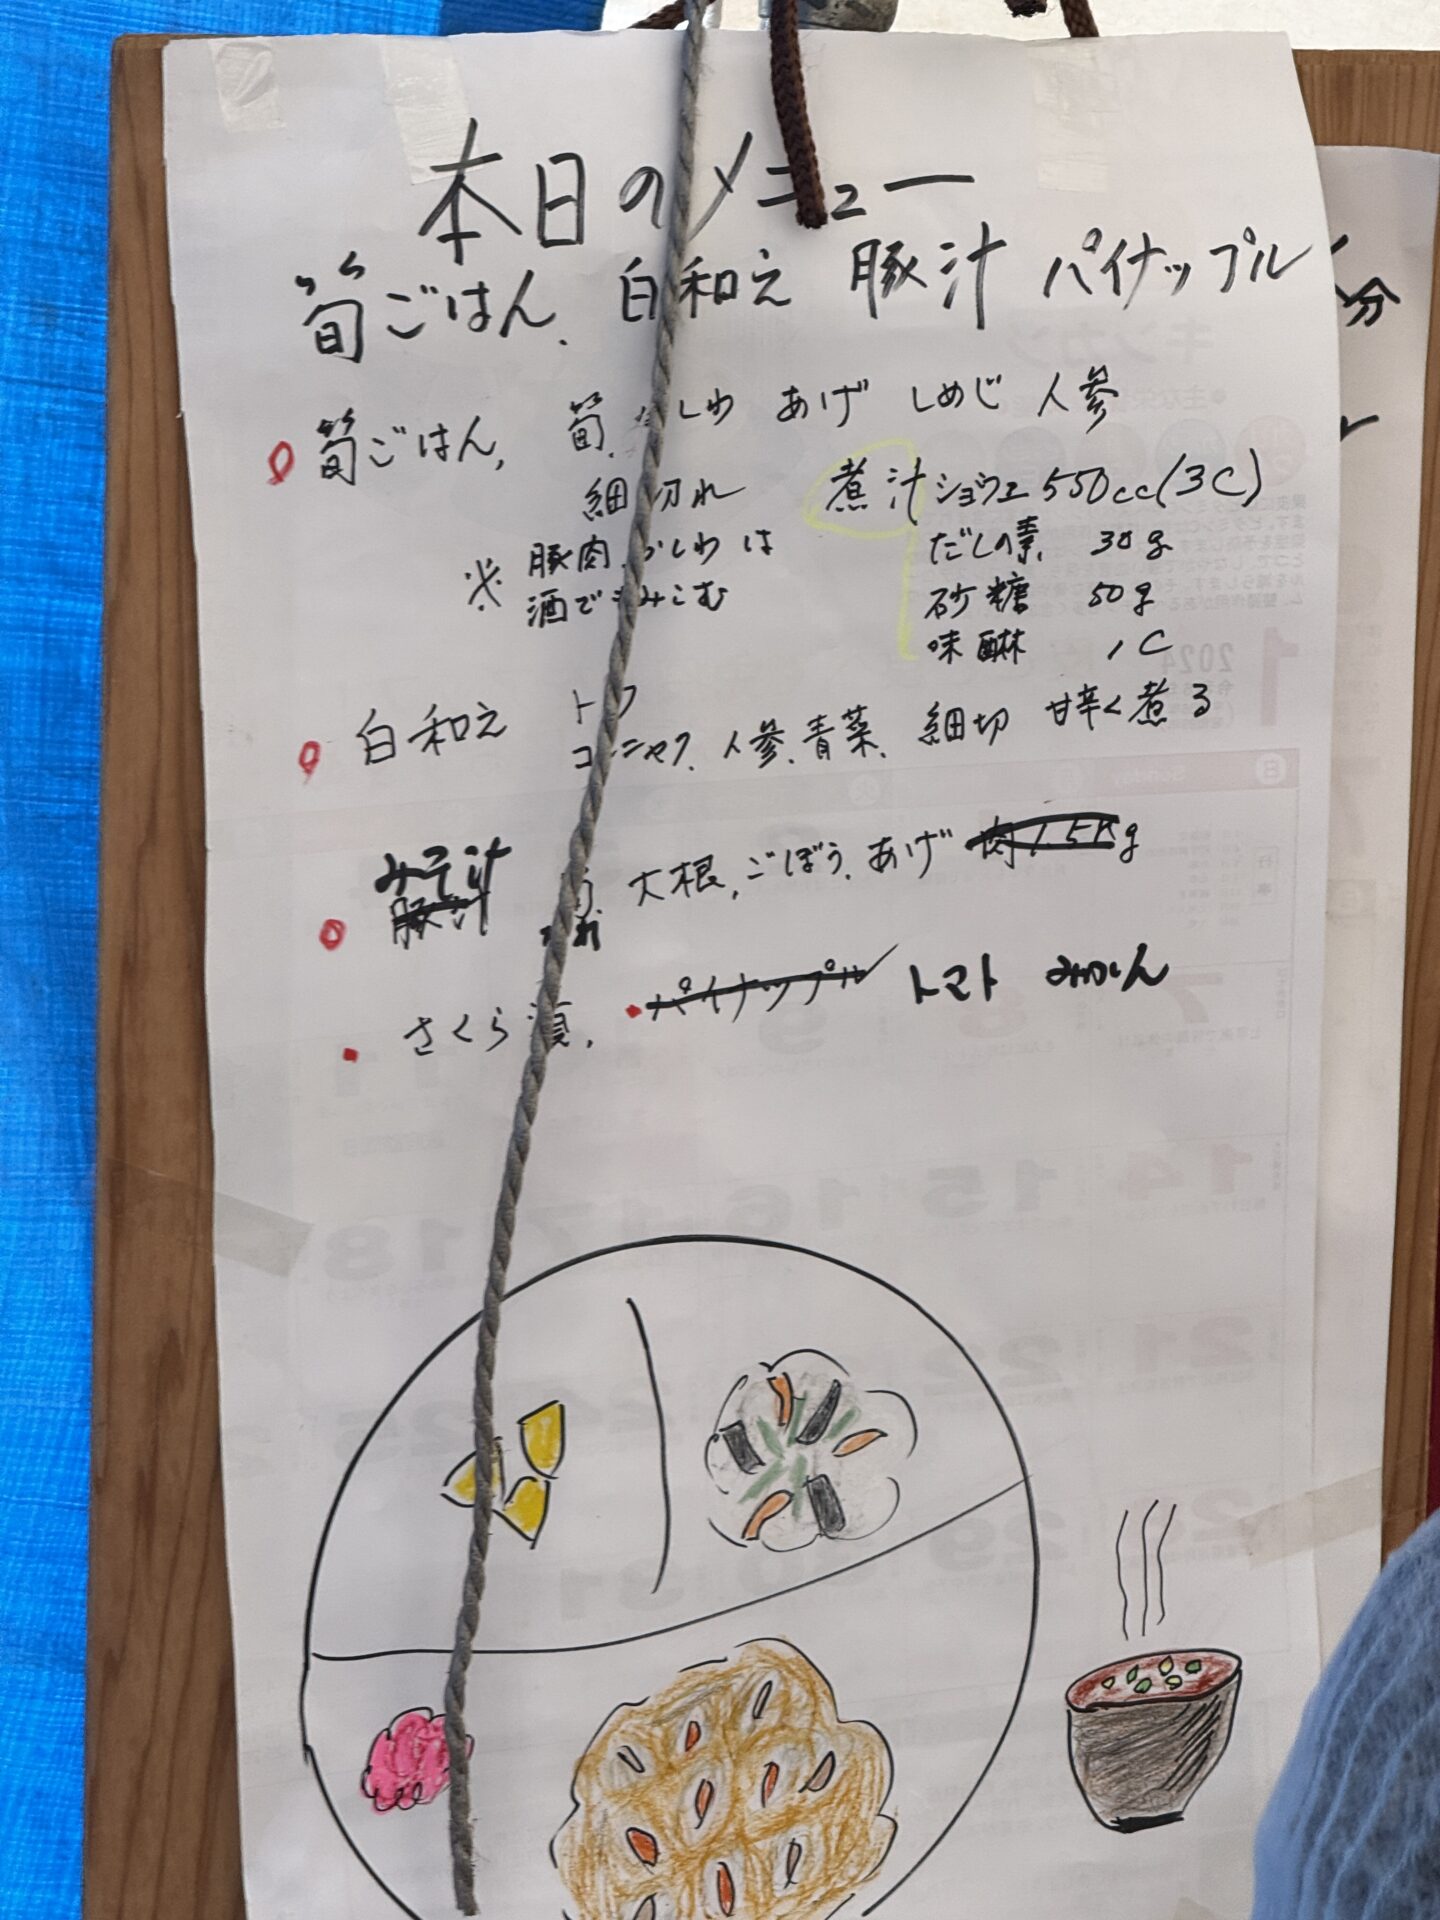 本日のメニュー
筍ごはん、白和え 豚汁 パイナップル
筍ごはん、筍、かしわ あげ しめじ 人参
細切れ
煮汁 ショウユ 550cc(3C)
だしの素 30g
砂糖 50g
味醂 1C
※豚肉、かしわは
酒でもみこむ
白和え トフ
コンニャク、人参、青菜、細切 甘辛く煮る
みそ汁
豚汁
大根、ごぼう、あげ 肉1.5Kg
さくら漬、パイナップル トマト みかん
分
キンカン
2024
1
Sunday
日
7
8
9
11
14
15
16
17
18
21
22
25
29
31